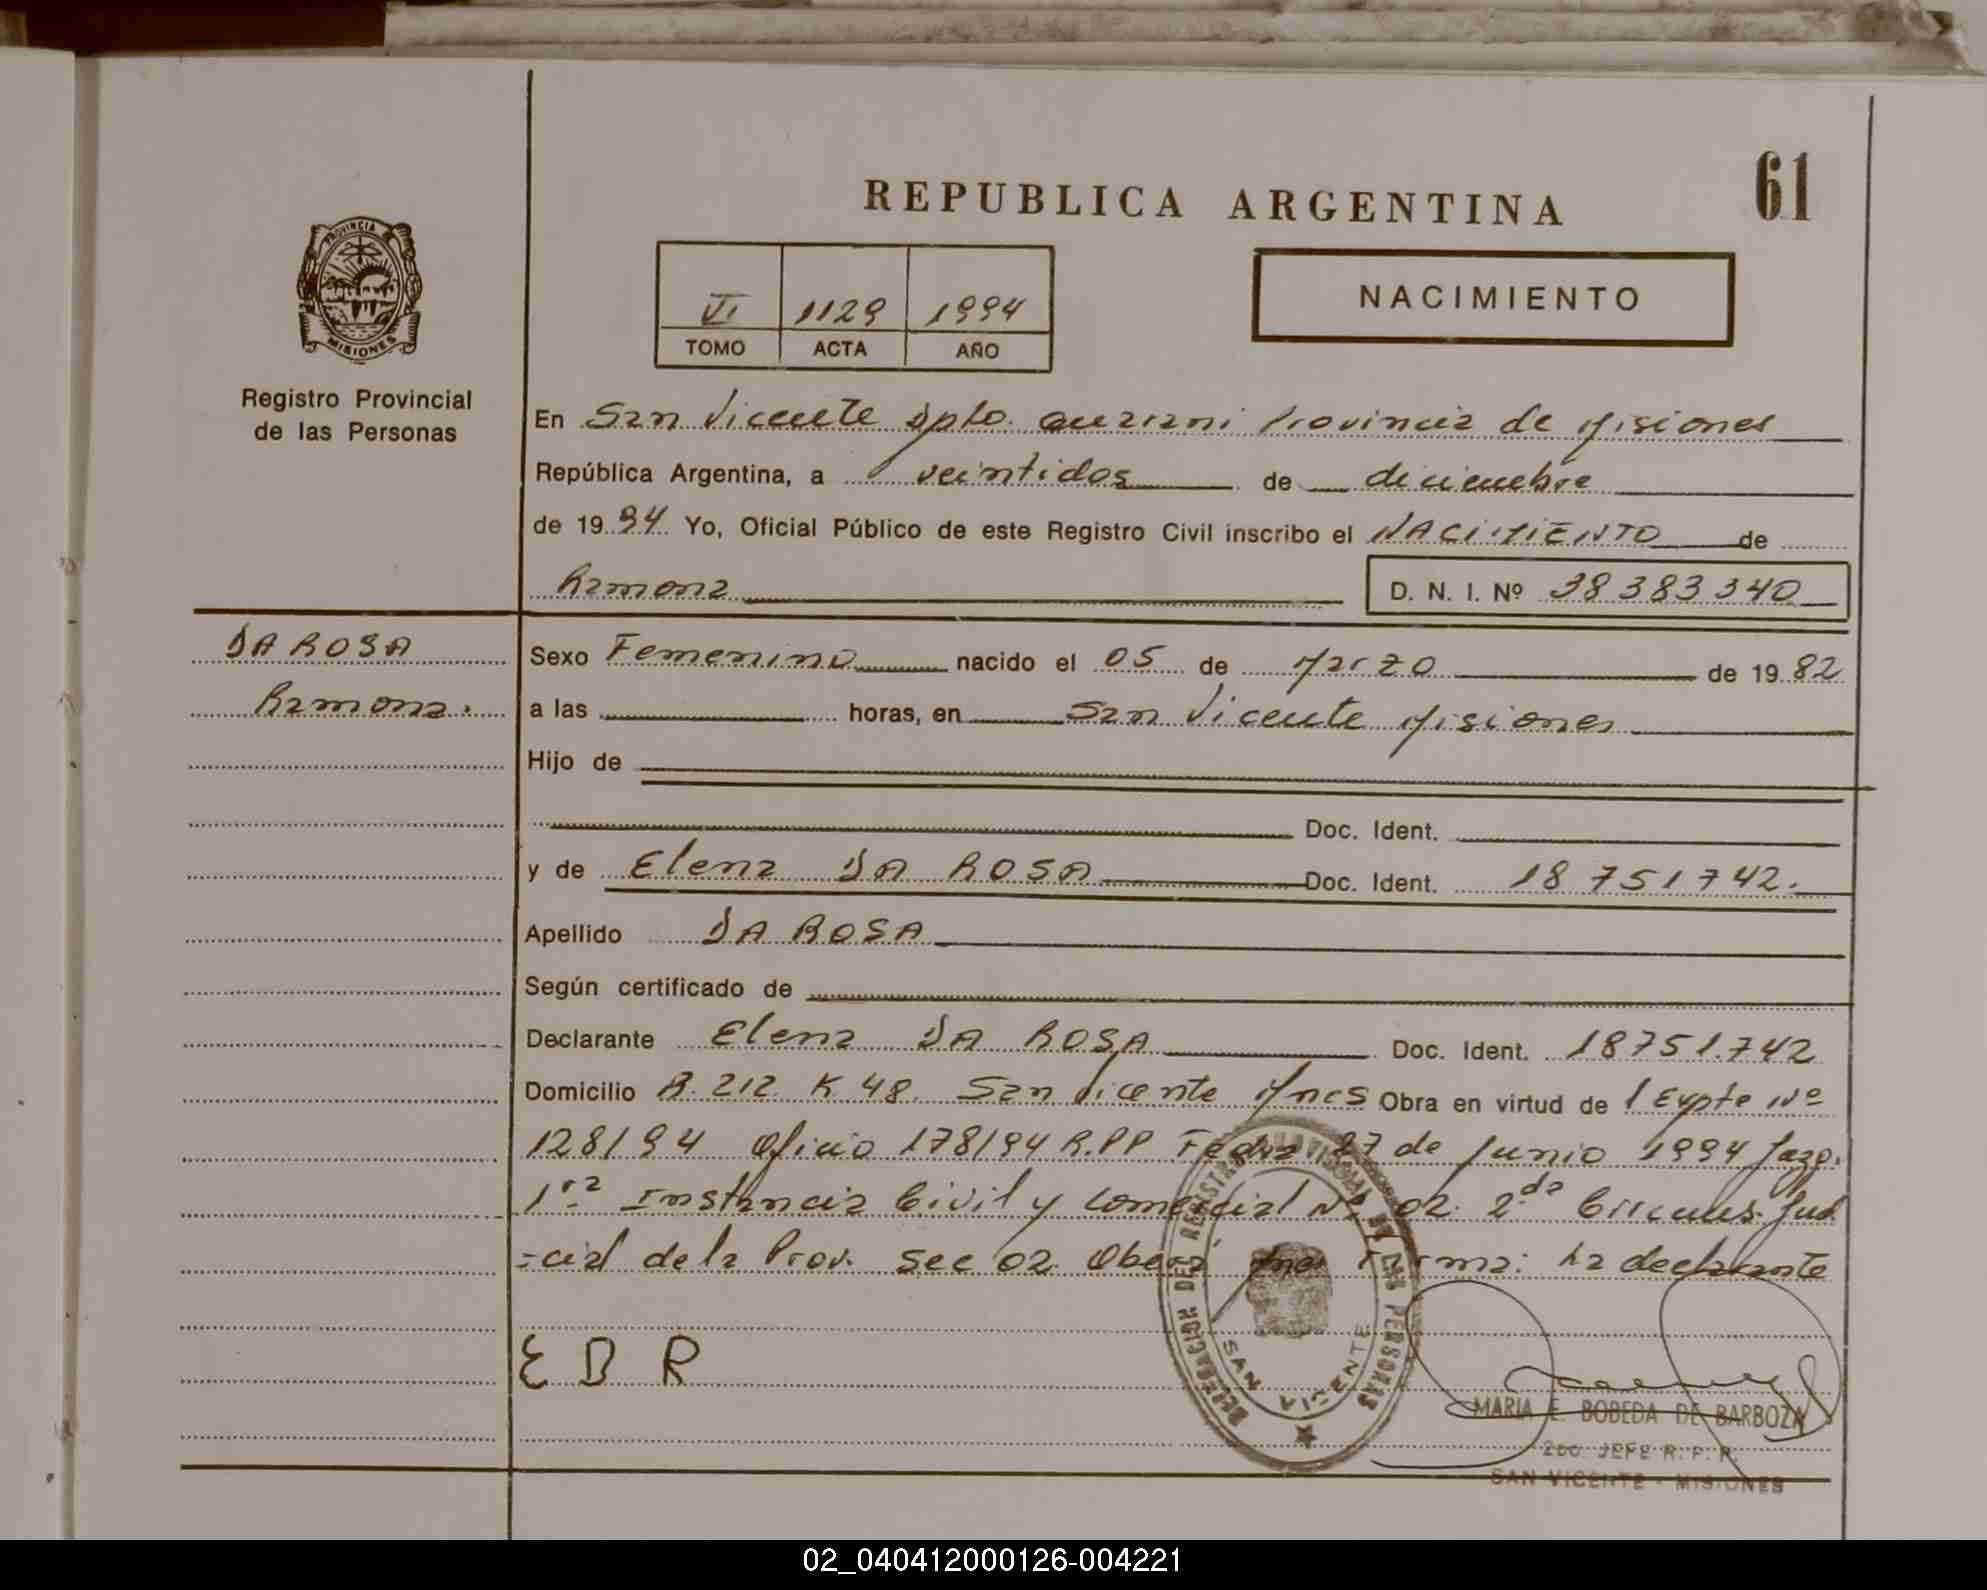 REPUBLICA ARGENTINA
61
PROVINCIA DE
MISIONES
Registro Provincial
de las Personas
NACIMIENTO
VI 1129 1994
TOMO ACTA AÑO
En San Vicente Dpto. Guarani Provincia de Misiones
República Argentina, a veintidos de diciembre
de 1994 Yo, Oficial Público de este Registro Civil inscribo el NACIMIENTO de
Ramona D. N. I. Nº 38 383 340
DA ROSA
Ramona.
Sexo Femenino nacido el 05 de Marzo de 1982
a las horas, en San Vicente Misiones
Hijo de
Doc. Ident.
y de Elena DA ROSA Doc. Ident. 18 751 742.
Apellido DA ROSA
Según certificado de
Declarante Elena DA ROSA Doc. Ident. 18751.742
Domicilio R. 212 K 48. San Vicente Mnes Obra en virtud de l Expte Nº
128/94 Oficio 178/94 R.PP Fecha 27 de Junio 1994 Juzg.
1ra Instancia Civil y Comercial Nº 02. 2da Circuns. Judi
-cial de la Prov. Sec 02 Obera Mnes Firma: La declarante
E D R
DELEGACION DEL REGISTRO PROVINCIAL DE LAS PERSONAS
SAN VICENTE
MARIA E. BOBEDA DE BARBOZA
2do. JEFE R. P. P.
SAN VICENTE - MISIONES
02_040412000126-004221